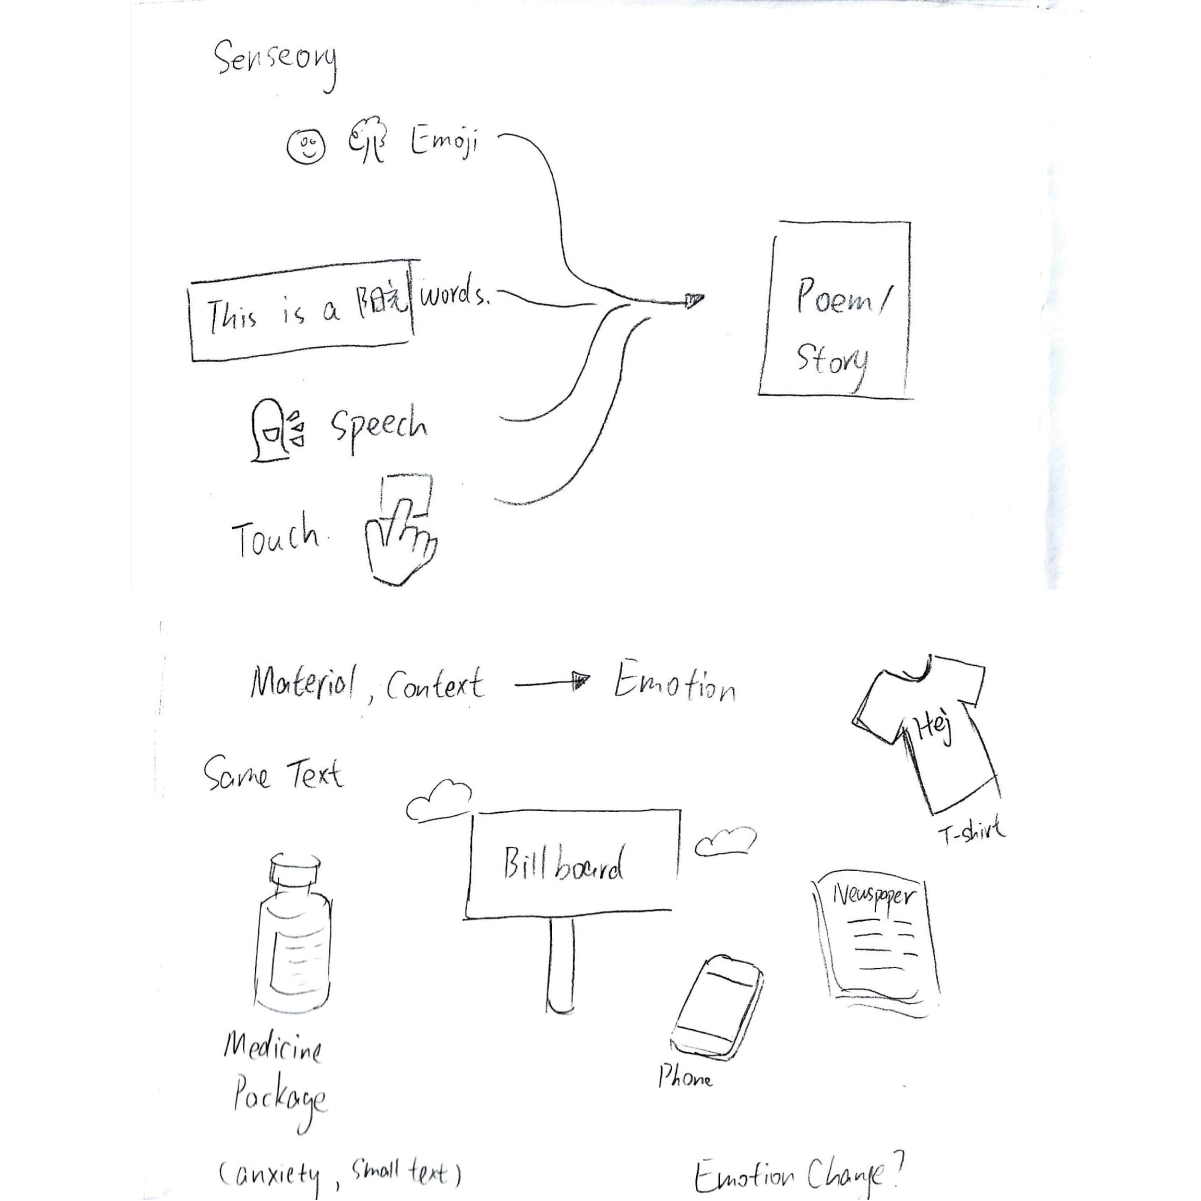 Senseory
Emoji
This is a 阳光 words.
Speech
Touch.
Poem/
Story
Material, Context → Emotion
Same Text
Hej
T-shirt
Billboard
Newspaper
Medicine
Package
Phone
(anxiety, small text)
Emotion Change?